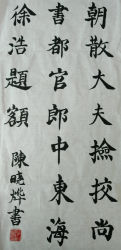 朝散大夫撿挍尚
書都官郎中東海
徐浩題額
陳曉燁書